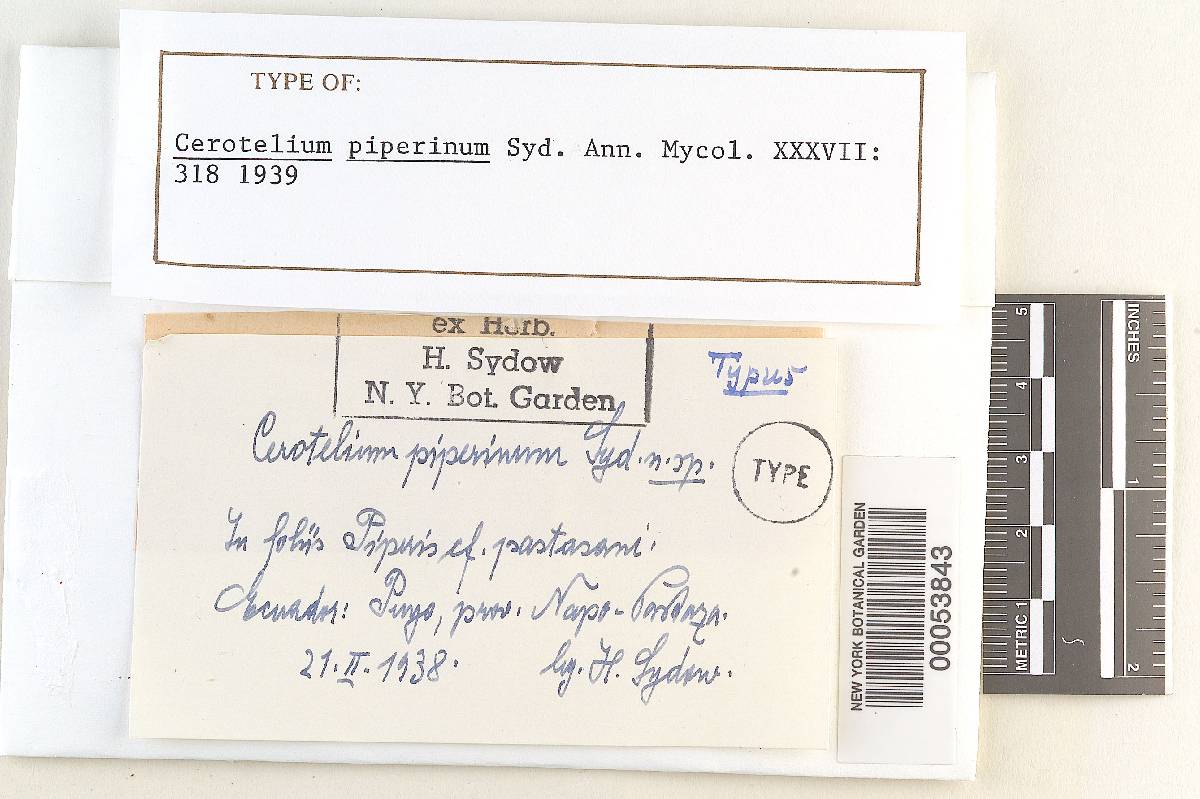 TYPE OF:
Cerotelium piperinum Syd. Ann. Mycol. XXXVII:
318 1939
ex Herb.
H. Sydow
N. Y. Bot. Garden
Typus
Cerotelium piperinum Syd. n. sp.
TYPE
In foliis Piperis cf. pastasani.
Ecuador: Puyo, prov. Napo-Pastaza.
21. II. 1938. leg. H. Sydow.
NEW YORK BOTANICAL GARDEN
00053843
INCHES
1
2
METRIC 1
2
3
4
5